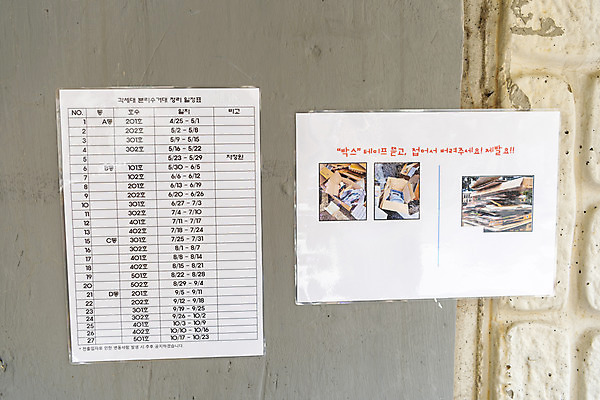 각세대 분리수거대 정리 일정표
NO. 동 호수 일자 비고
1 A동 201호 4/25 – 5/1
2 202호 5/2 – 5/8
3 301호 5/9 – 5/15
4 302호 5/16 – 5/22
5 5/23 – 5/29
6 B동 101호 5/30 – 6/5
7 102호 6/6 – 6/12
8 201호 6/13 – 6/19
9 202호 6/20 – 6/26
10 301호 6/27 – 7/3
11 302호 7/4 – 7/10
12 401호 7/11 – 7/17
13 402호 7/18 – 7/24
15 C동 301호 7/25 – 7/31
16 302호 8/1 – 8/7
17 401호 8/8 – 8/14
18 402호 8/15 – 8/21
19 501호 8/22 – 8/28
20 502호 8/29 – 9/4
21 D동 201호 9/5 – 9/11
22 202호 9/12 – 9/18
23 301호 9/19 – 9/25
24 302호 9/26 – 10/2
25 401호 10/3 – 10/9
26 402호 10/10 – 10/16
27 501호 10/17 – 10/23
* 전출입자로 인한 변동사항 발생 시 추후 공지하겠습니다
"박스" 테이프 뜯고, 접어서 버려주세요! 제발요!!